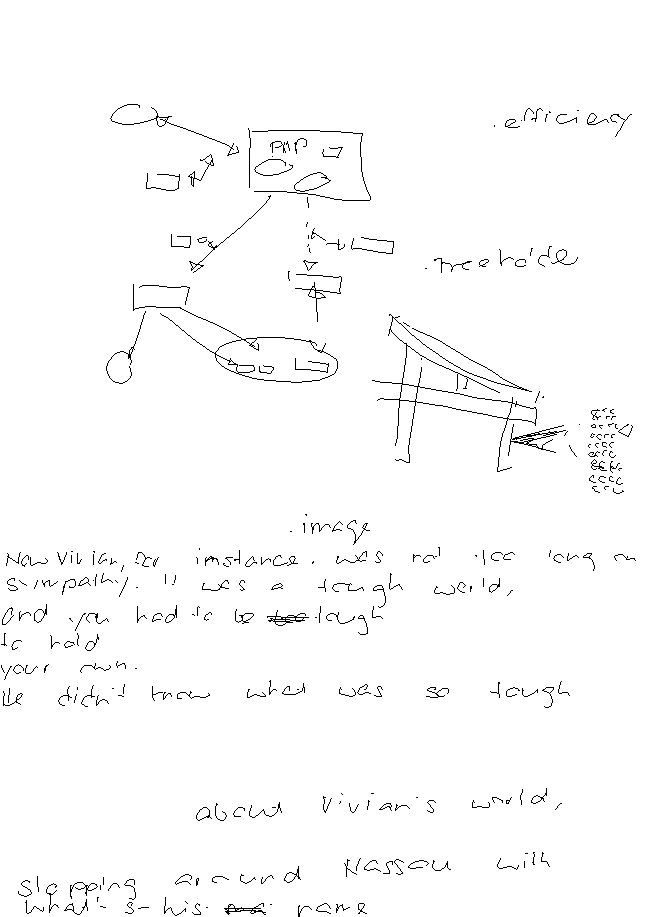 .efficiency
PHP
.image
Now Vivian, for instance. was not too long on
sympathy. It was a tough world,
and you had to be tough
to hold
your own.
He didn't know what was so tough
about Vivian's world,
slopping around Nassau with
what's-his name